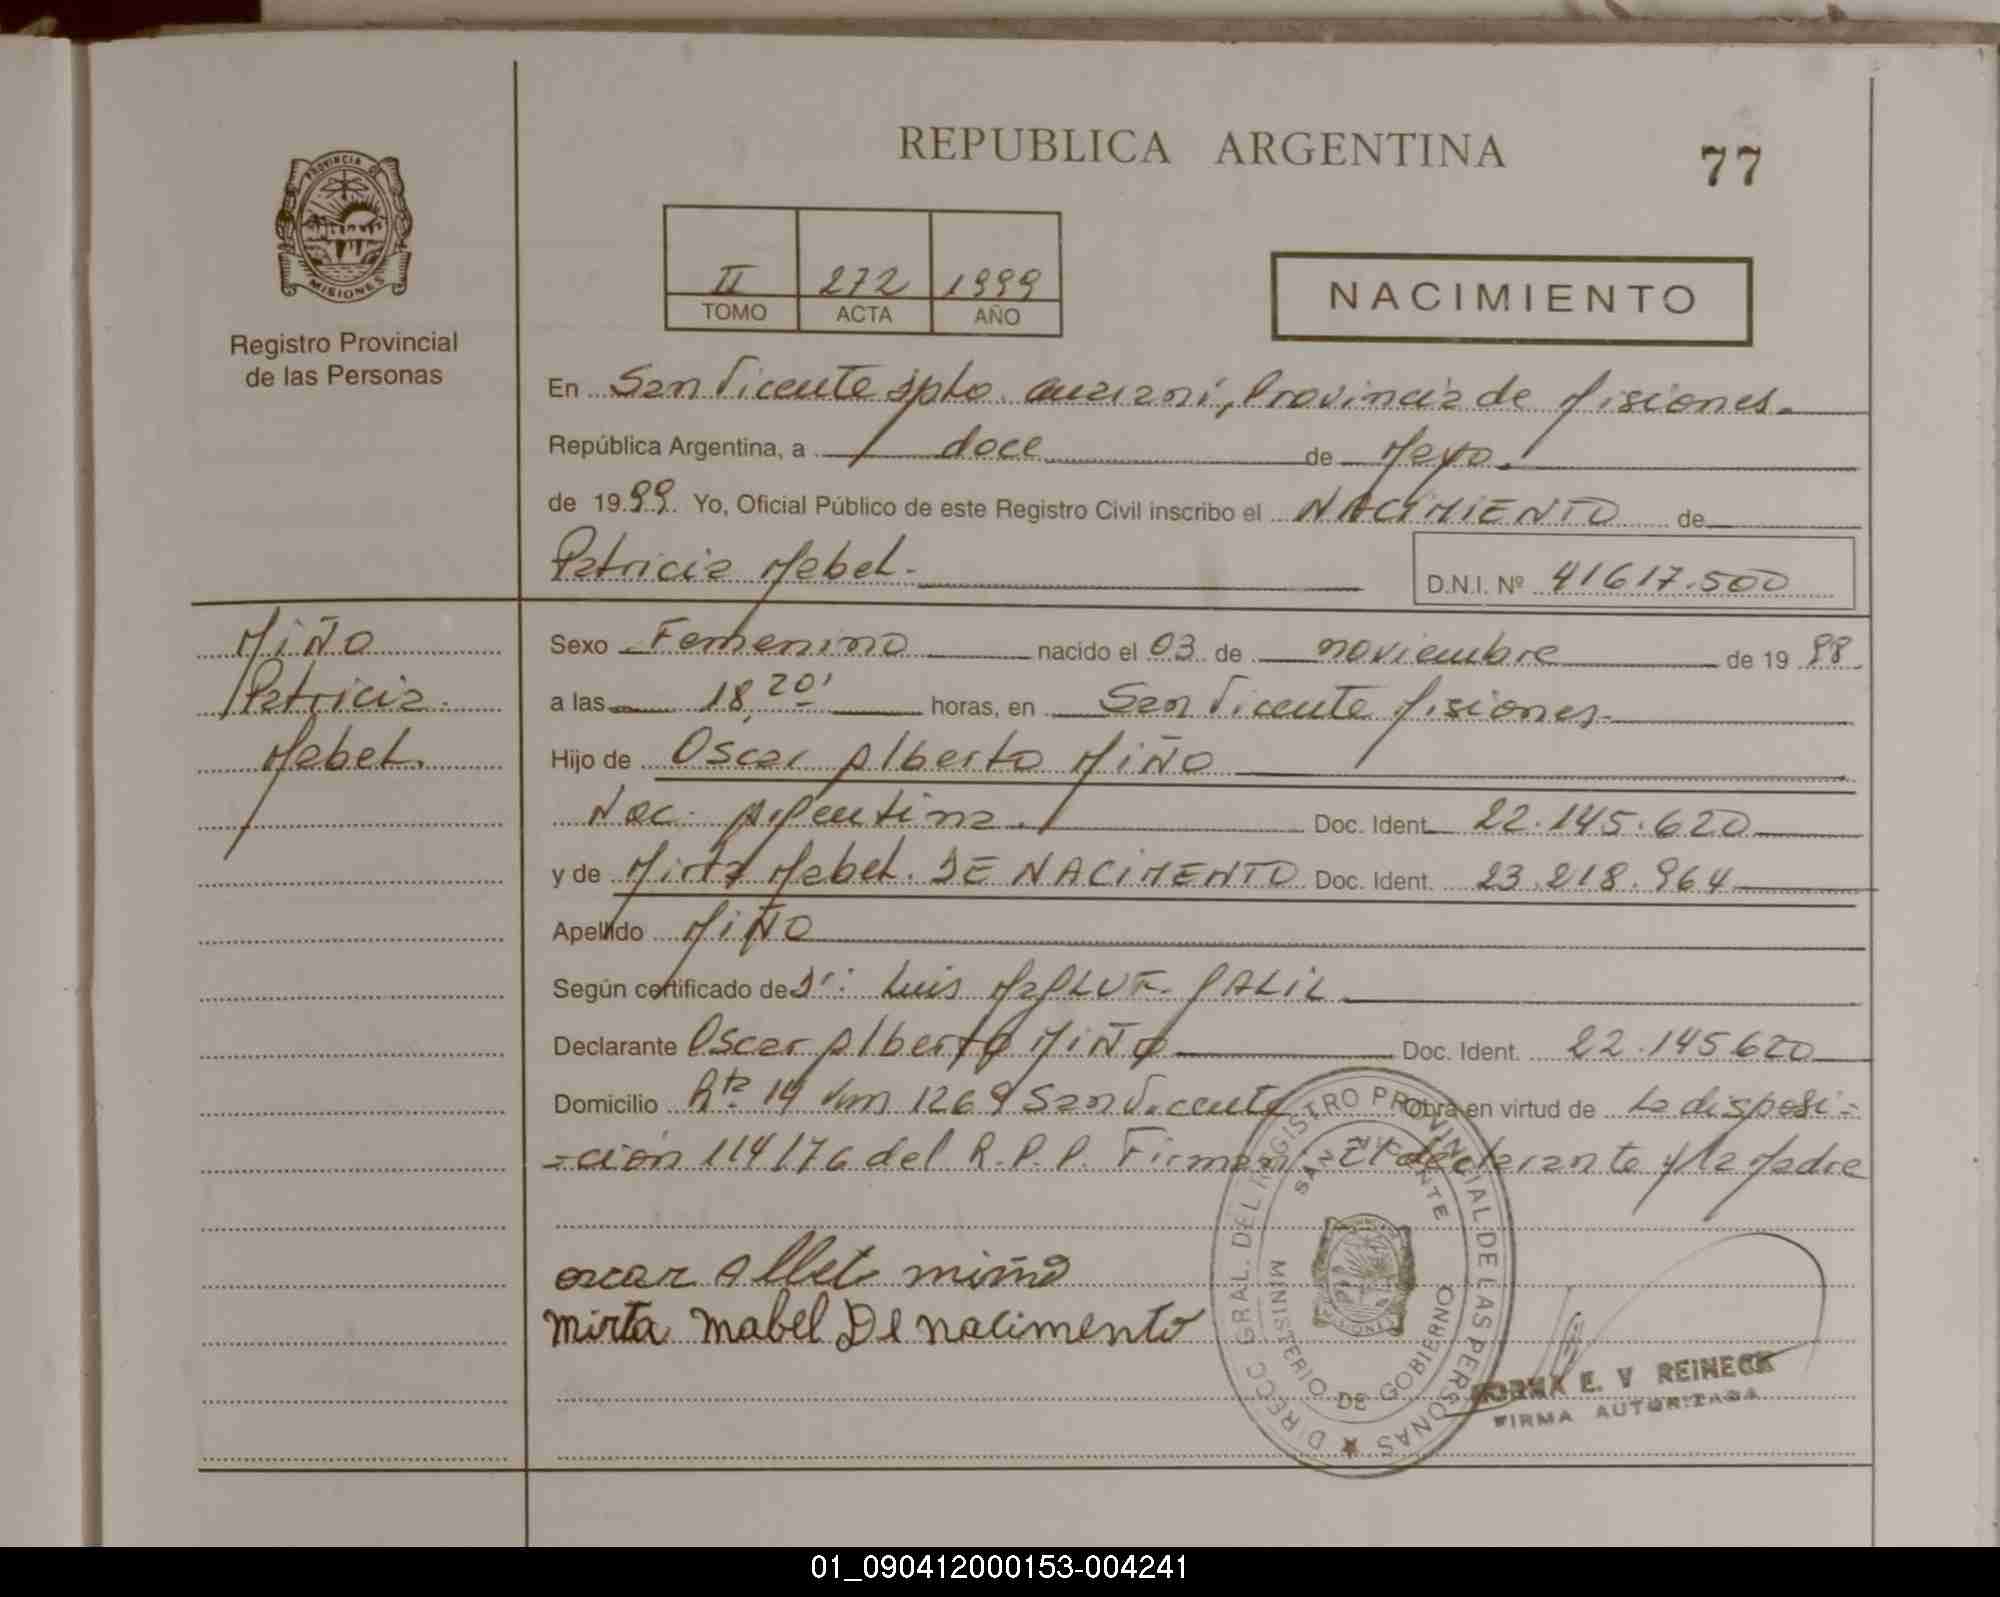 REPUBLICA ARGENTINA
77
PROVINCIA DE
MISIONES
Registro Provincial
de las Personas
II 272 1999
TOMO ACTA AÑO
NACIMIENTO
En San Vicente Dpto. Guaraní, Provincia de Misiones.
República Argentina, a doce de Mayo.
de 1999. Yo, Oficial Público de este Registro Civil inscribo el NACIMIENTO de
Patricia Mabel.
D.N.I. Nº 41617.500
MIÑO
Patricia
Mabel.
Sexo Femenino nacido el 03 de noviembre de 1998
a las 18,20' horas, en San Vicente Misiones.
Hijo de Oscar Alberto MIÑO
Nac. Argentina. Doc. Ident. 22.145.620
y de Mirta Mabel. DE NACIMENTO Doc. Ident. 23.218.964
Apellido MIÑO
Según certificado de Dr: Luis GALIL
Declarante Oscar Alberto MIÑO Doc. Ident. 22.145620
Domicilio Rta 14 Km 1269 San Vicente Obra en virtud de La disposi=
=ción 114/76 del R.P.P. Firman: El declarante y la Madre
oscar miño
mirta mabel De nacimento
DIRECC. GRAL. DEL REGISTRO PROVINCIAL DE LAS PERSONAS
SAN VICENTE
MINISTERIO DE GOBIERNO
NORMA E. V REINECK
FIRMA AUTORIZADA
01_090412000153-004241